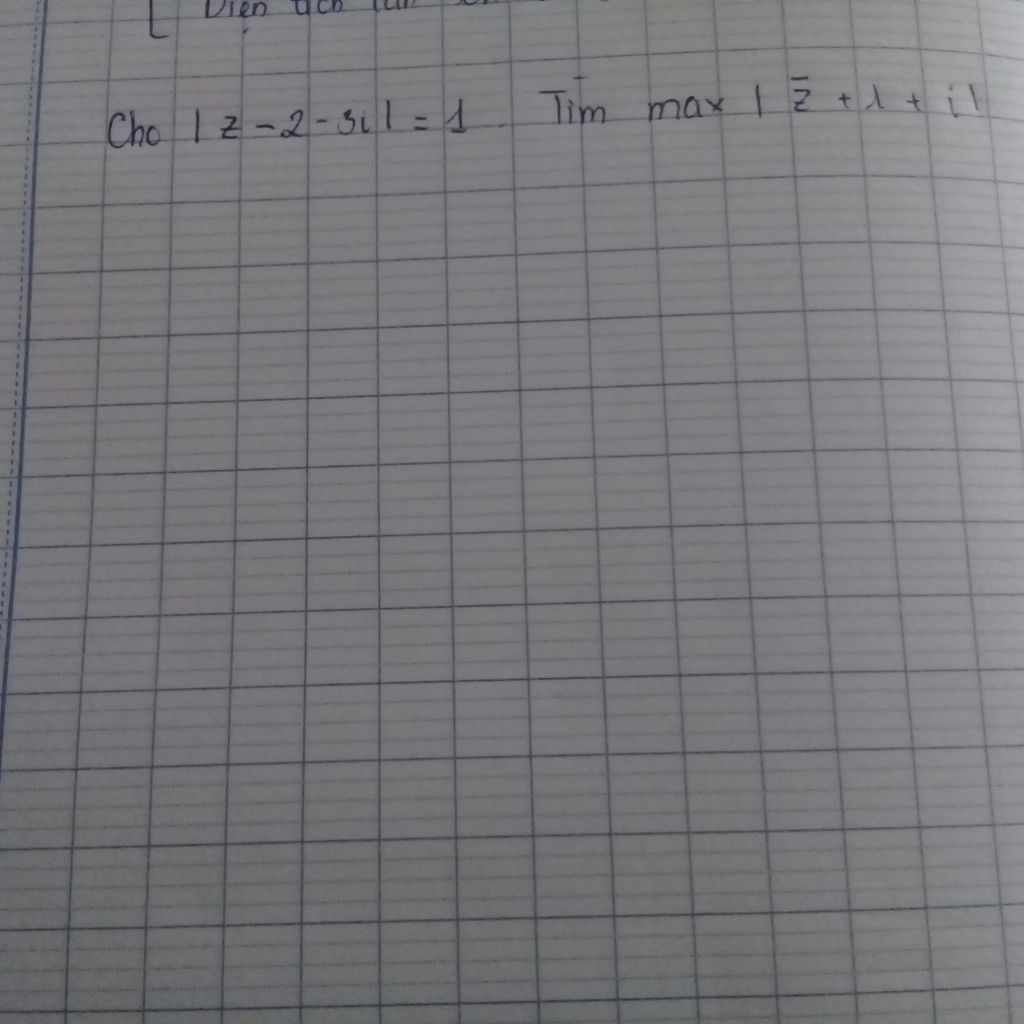 Diện tích
Cho | z - 2 - 3i | = 1. Tìm max | z̄ + 1 + i |